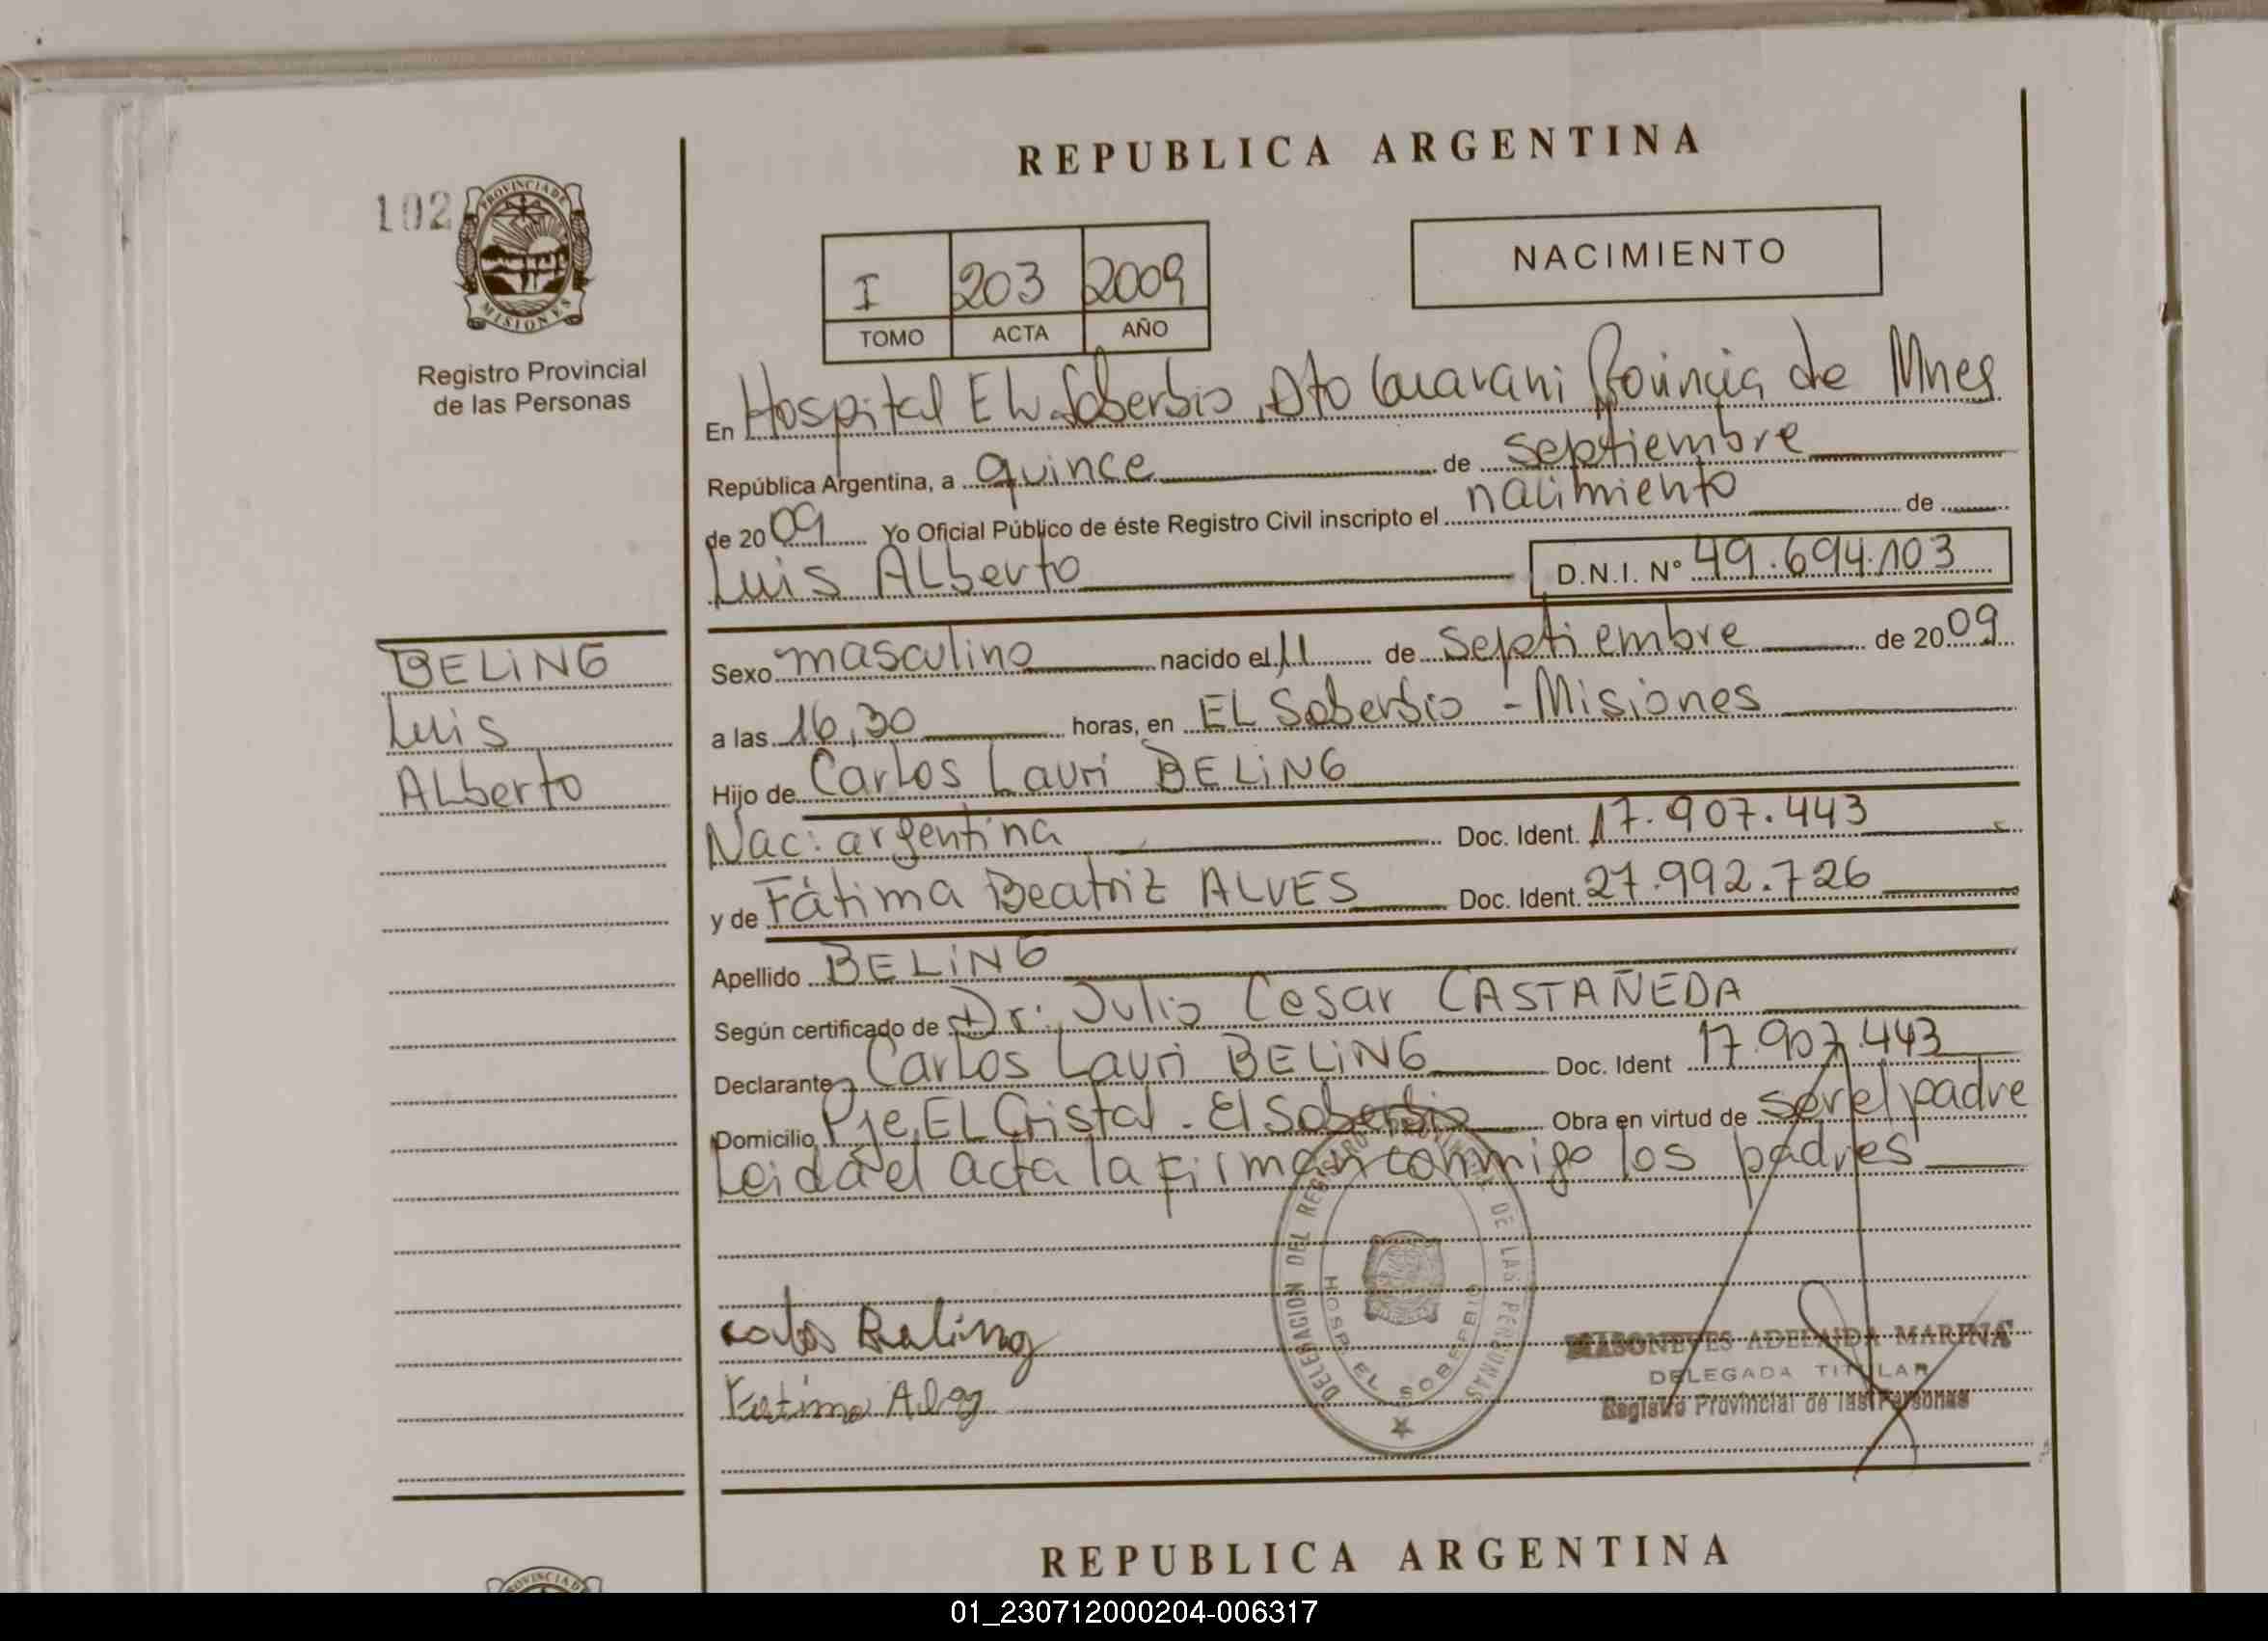 REPUBLICA ARGENTINA
102
PROVINCIA DE
MISIONES
Registro Provincial
de las Personas
I 203 2009
TOMO ACTA AÑO
NACIMIENTO
En Hospital EL Soberbio, Dto Guarani Provincia de Mnes
República Argentina, a quince de septiembre
de 2009 Yo Oficial Público de éste Registro Civil inscripto el nacimiento de
Luis ALberto D.N.I. Nº 49.694.103
BELiNG
Luis
ALberto
Sexo masculino nacido el 11 de Septiembre de 2009
a las 16,30 horas, en EL Soberbio - Misiones
Hijo de Carlos Lauri BELiNG
Nac: argentina Doc. Ident. 17.907.443
y de Fátima Beatriz ALVES Doc. Ident. 27.992.726
Apellido BELiNG
Según certificado de Dr. Julio Cesar CASTAÑEDA
Declarante Carlos Lauri BELiNG Doc. Ident 17.907.443
Domicilio Pje EL Cristal - El Soberbio Obra en virtud de ser el padre
Leida el acta la firman conmigo los padres
DELEGACION DEL REGISTRO PROVINCIAL DE LAS PERSONAS
HOSP. EL SOBERBIO
Beling
ADELAIDA MARINA
DELEGADA TITULAR
Registro Provincial de las Personas
REPUBLICA ARGENTINA
PROVINCIA DE
01_230712000204-006317